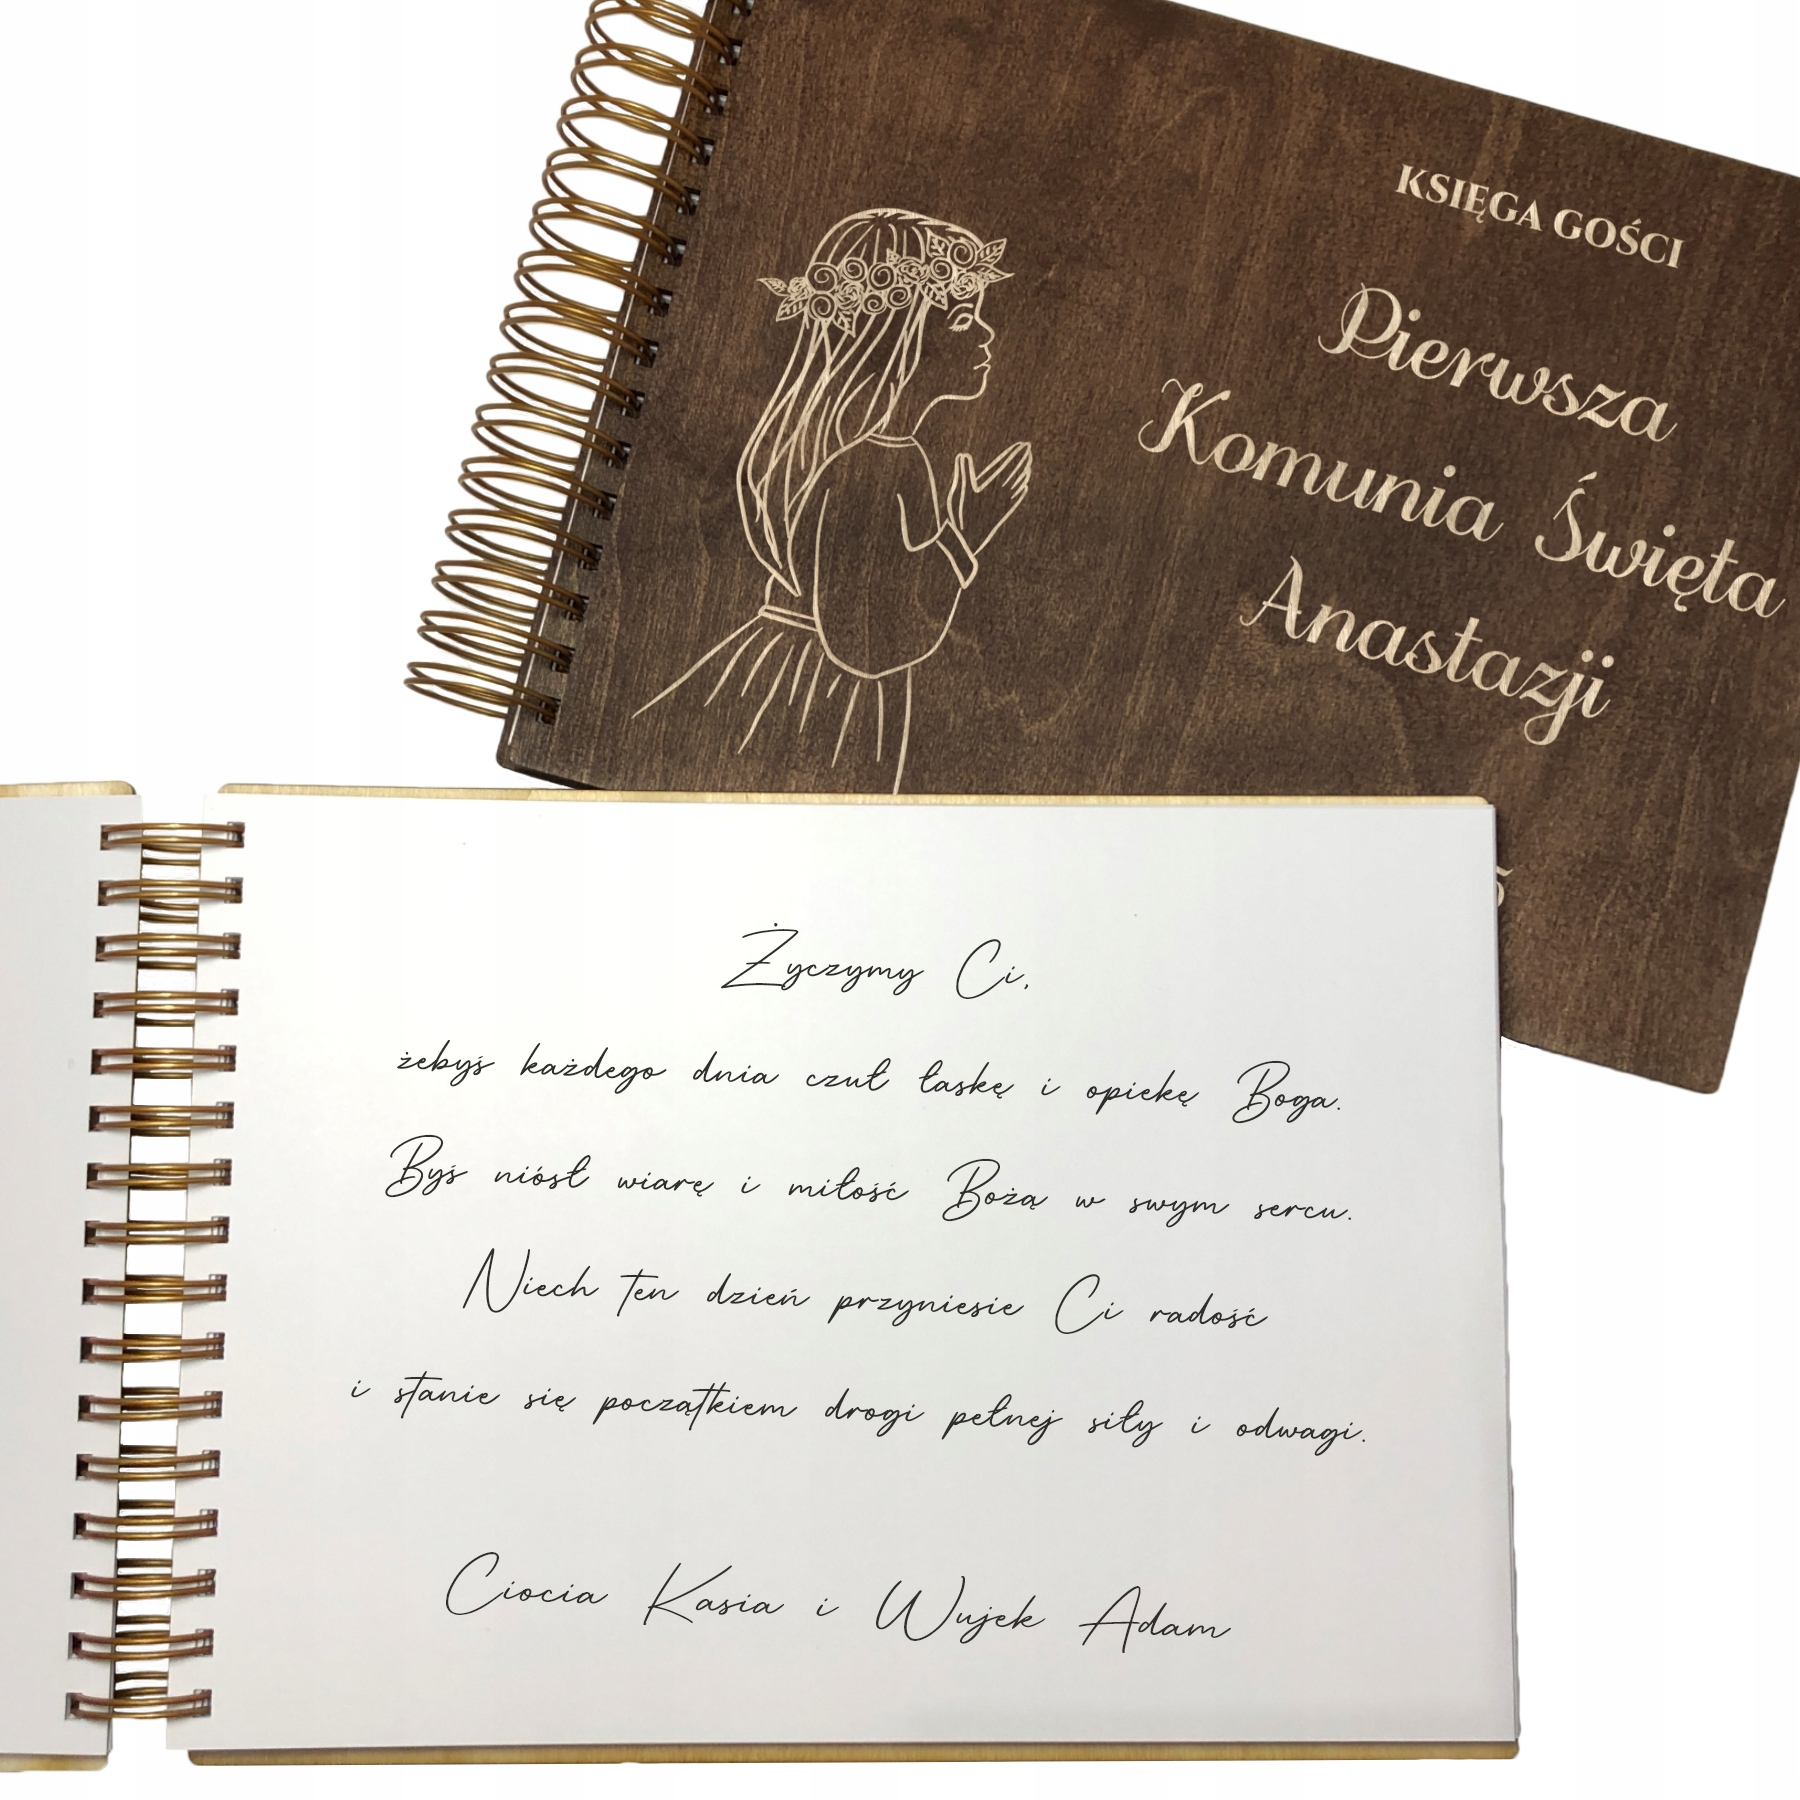 KSIĘGA GOŚCI
Pierwsza
Komunia Święta
Anastazji
5
Życzymy Ci,
żebyś każdego dnia czuł łaskę i opiekę Boga.
Byś niósł wiarę i miłość Bożą w swym sercu.
Niech ten dzień przyniesie Ci radość
i stanie się początkiem drogi pełnej siły i odwagi.
Ciocia Kasia i Wujek Adam